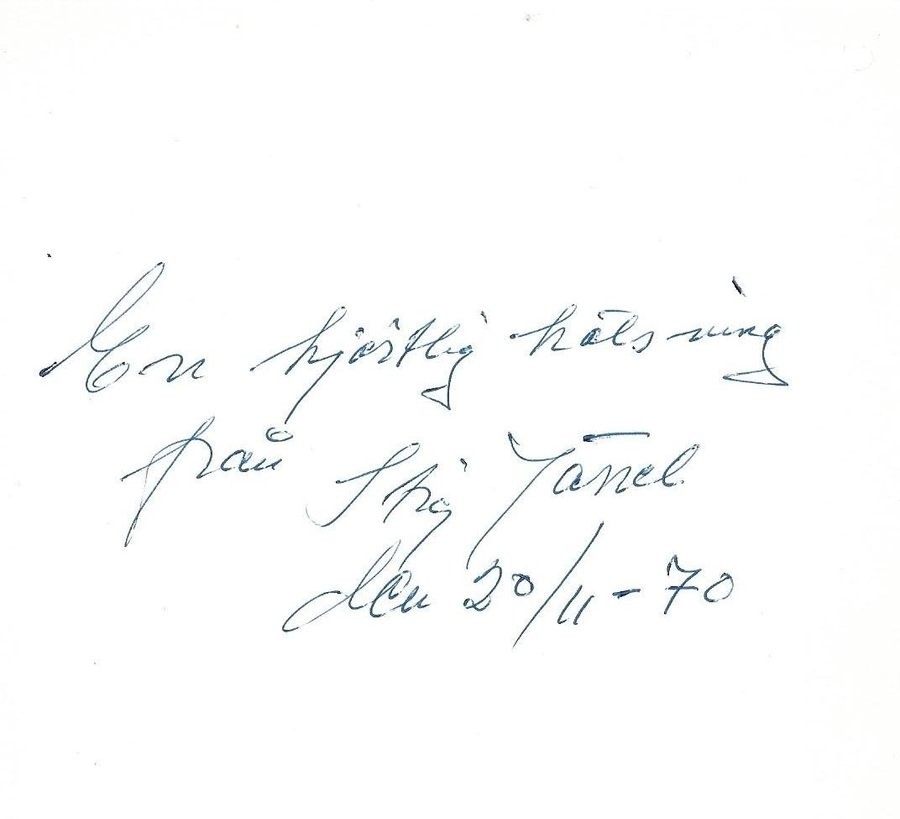 En hjärtlig hälsning
från Stig Järrel
den 20/11-70